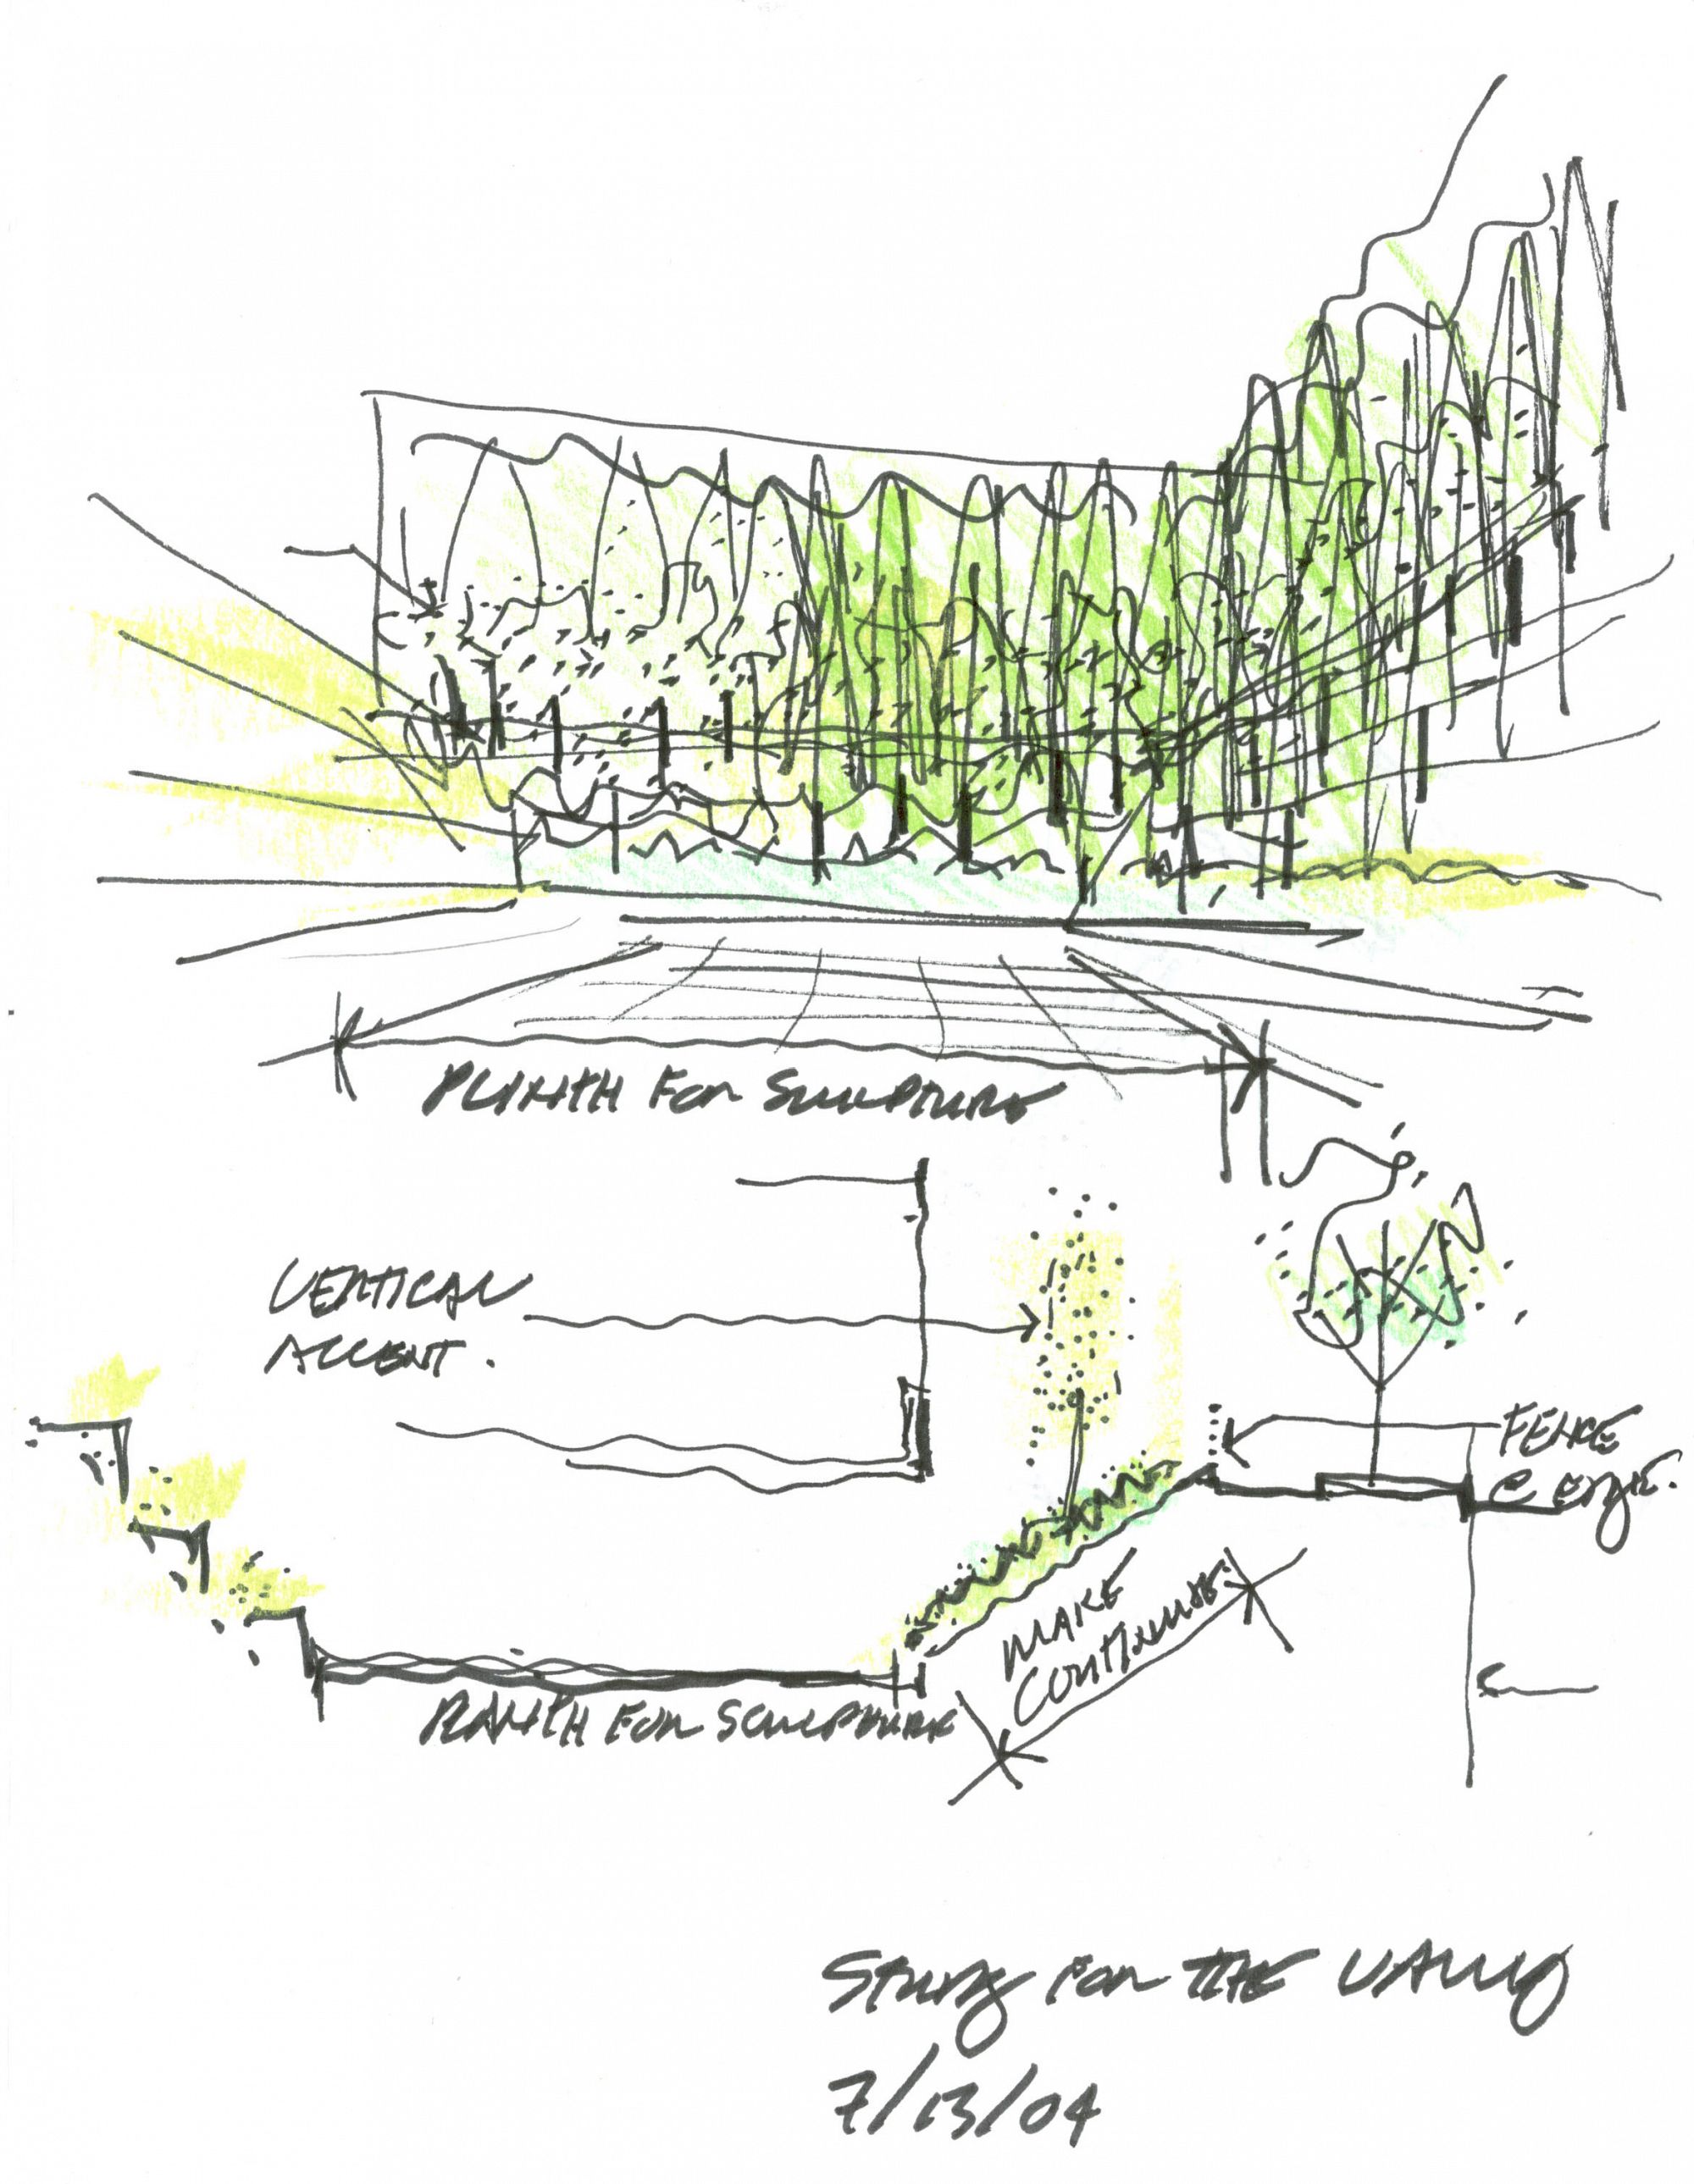 PLINTH FOR SCULPTURE
VERTICAL
ACCENT.
FENCE
@ EDGE.
MAKE
CONTINUOUS.
PLINTH FOR SCULPTURE
STUDY FOR THE VALLEY
7/13/04